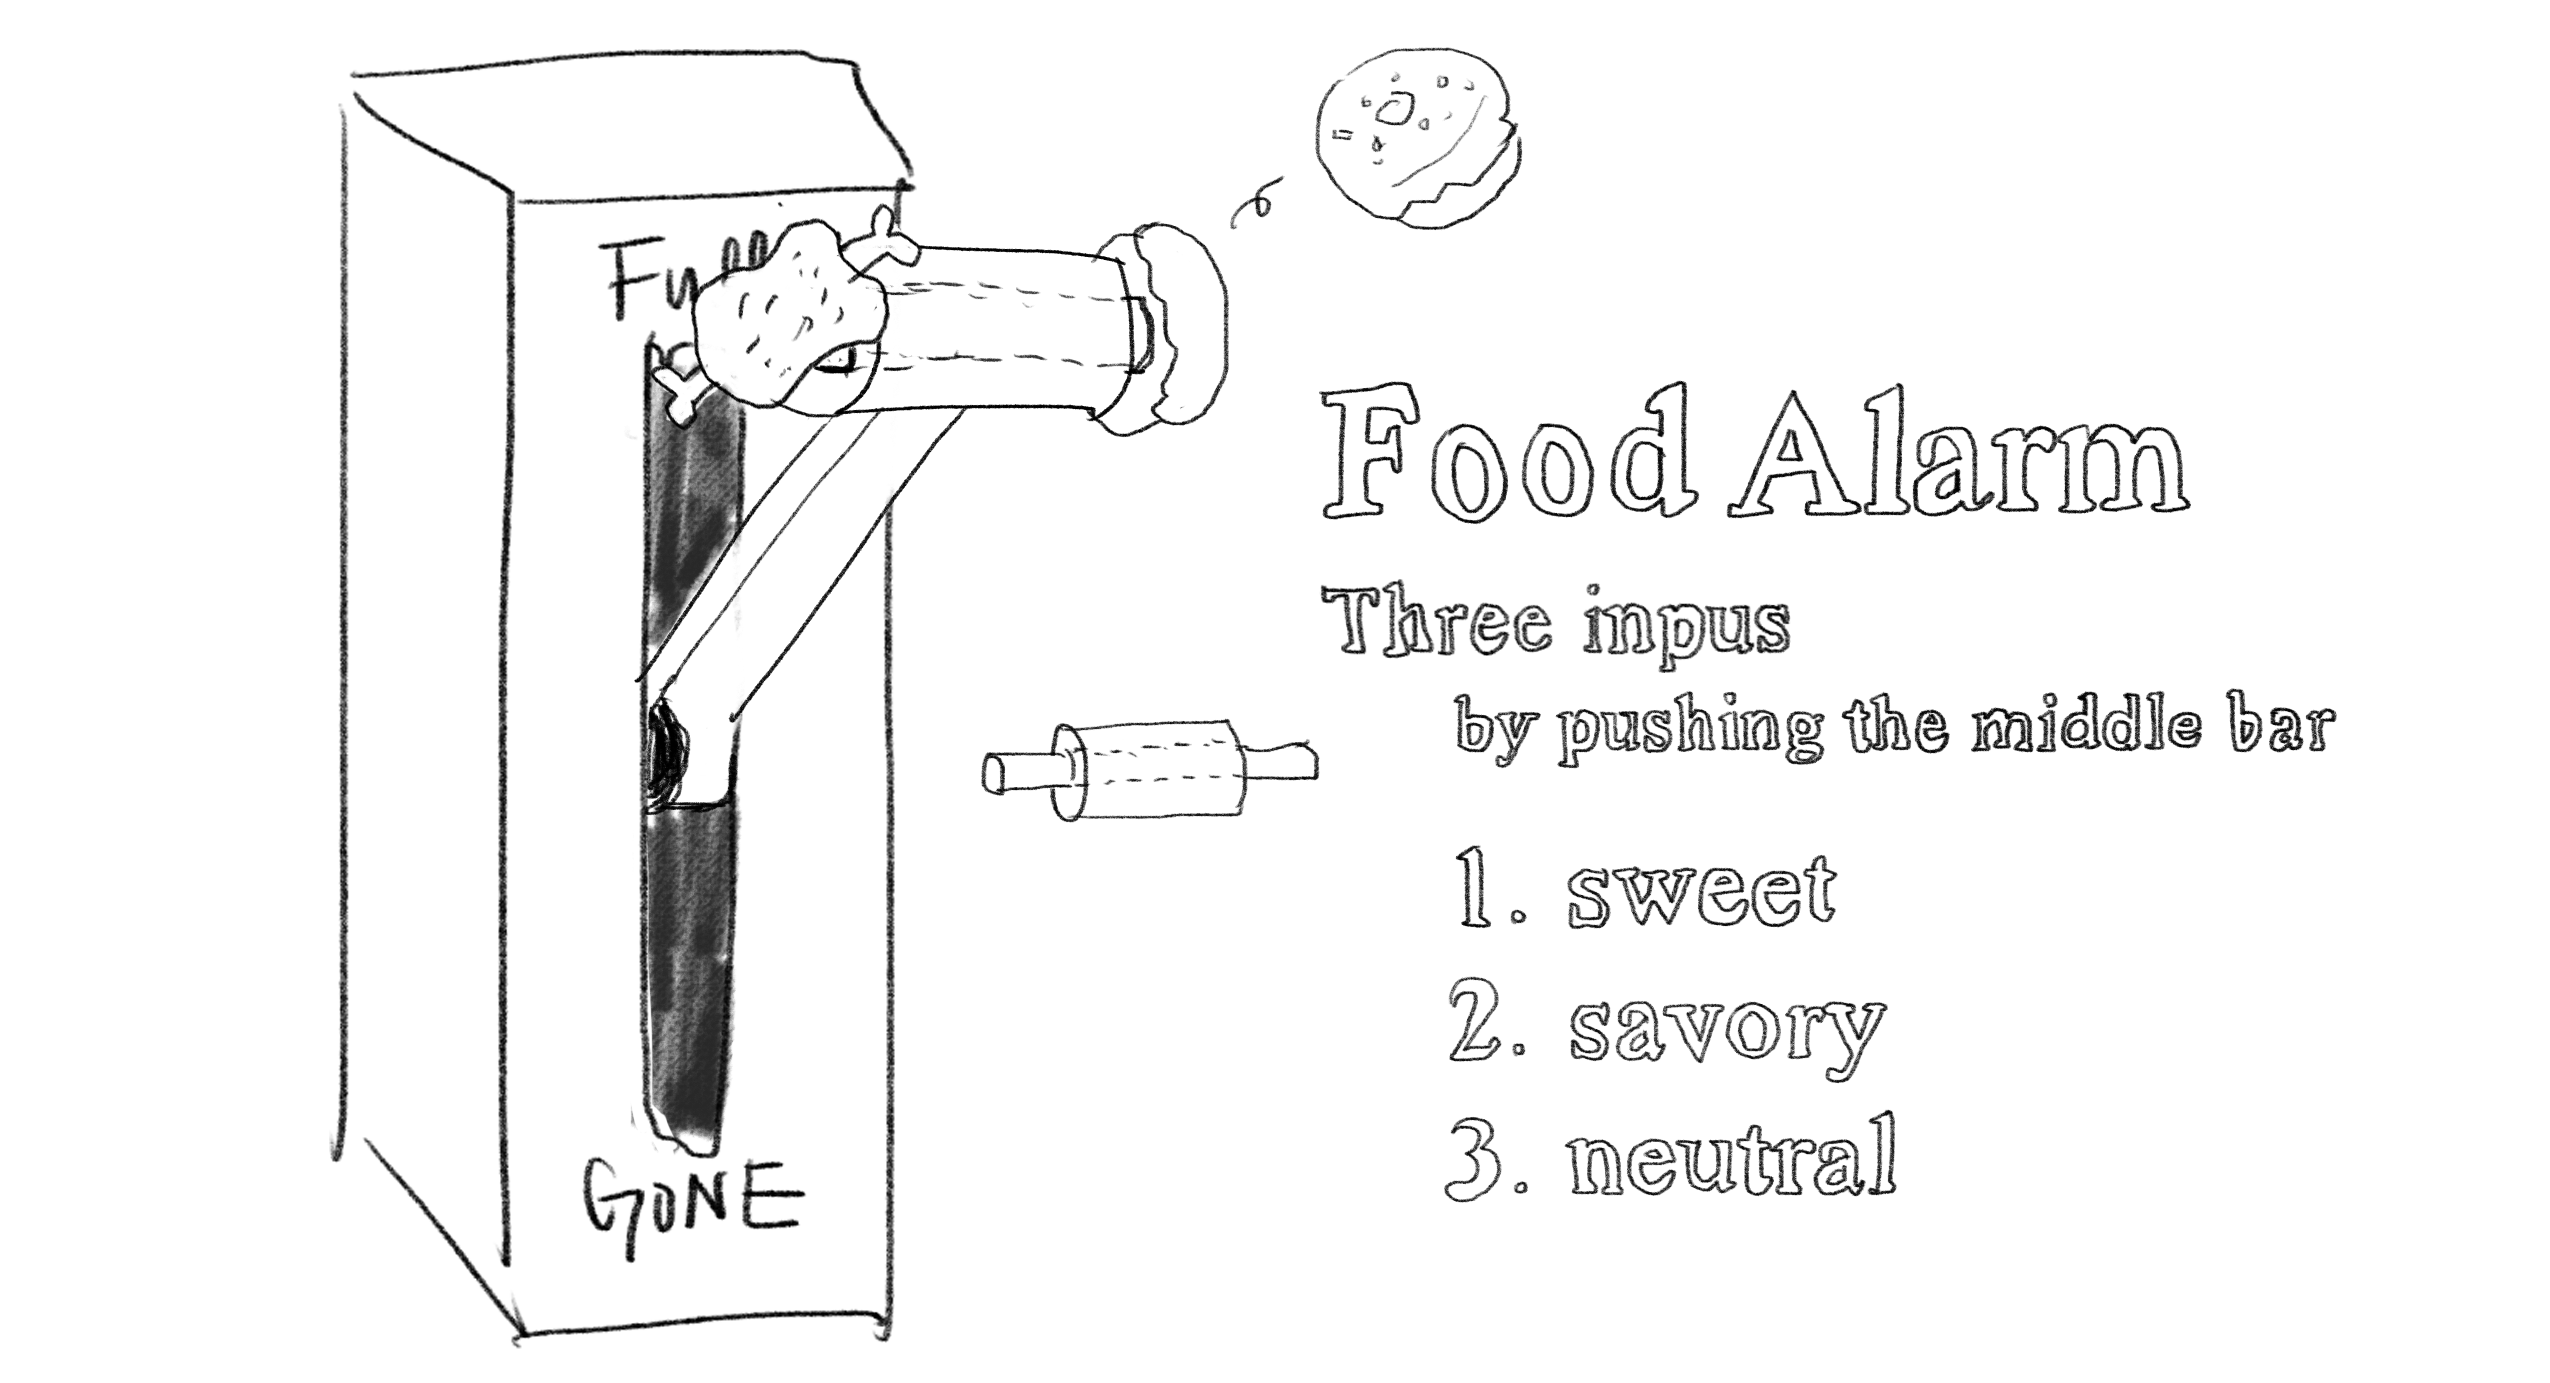 Full
Food Alarm
Three inpus
by pushing the middle bar
1. sweet
2. savory
3. neutral
GONE